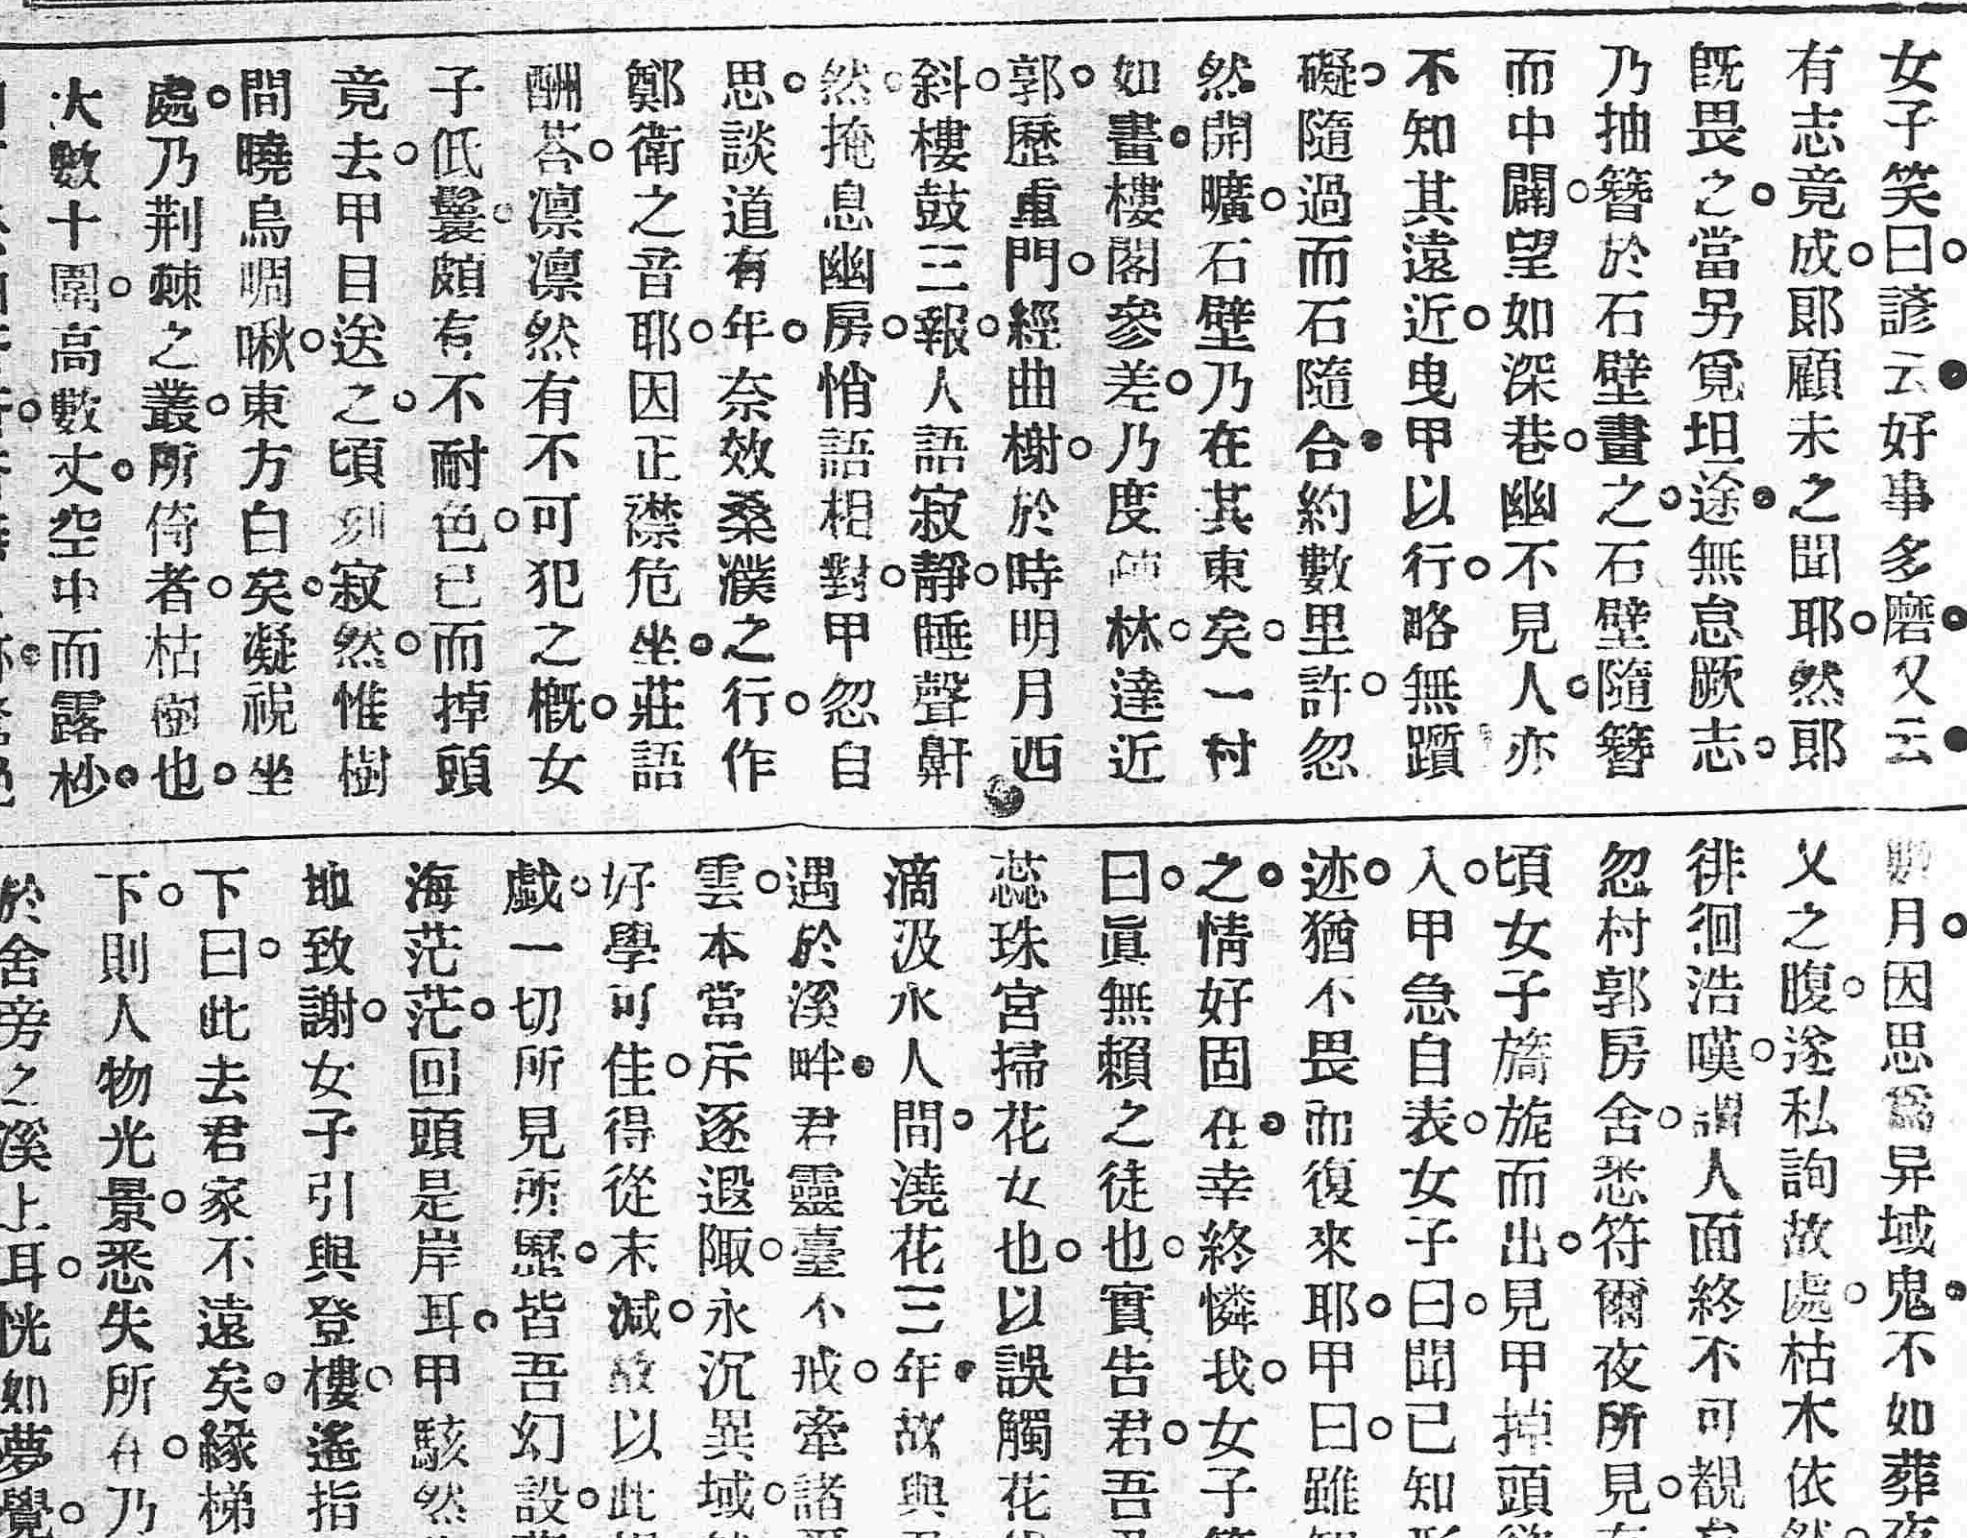 女子笑曰諺云好事多磨又云
有志竟成郞顧未之聞耶然郞
旣畏之當另覓坦途無怠厥志
乃抽簪於石壁畫之石壁隨簪
而中闢望如深巷幽不見人亦
不知其遠近曳甲以行略無躓
礙隨過而石隨合約數里許忽
然開曠石壁乃在其東矣一村
如畫樓閣參差乃度林達近
郭歷重門經曲榭於時明月西
斜樓鼓三報人語寂靜睡聲鼾
然掩息幽房悄語相對甲忽自
思談道有年奈效桑濮之行作
鄭衛之音耶因正襟危坐莊語
酬荅凛凛然有不可犯之槪女
子低鬟頗有不耐色已而掉頭
竟去甲目送之頃刻寂然惟樹
間曉烏啁啾東方白矣凝視坐
處乃荆棘之叢所倚者枯樹也
大數十圍高數丈空中而露杪
月因思爲异域鬼不如葬
之腹遂私詢故處枯木依
徘徊浩嘆謂人面終不可覩
忽村郭房舍悉符爾夜所見
頃女子旖旎而出見甲掉頭
入甲急自表女子曰聞已知
迹猶不畏而復來耶甲曰雖
之情好固在幸終憐我女子
曰眞無賴之徒也實告君吾
蕊珠宮掃花女也以誤觸花
滴汲水人間澆花三年故與
遇於溪畔君靈臺不戒牽諸
雲本當斥逐遐陬永沉異域
好學可佳得從末減故以此
戯一切所見所歷皆吾幻設
海茫茫回頭是岸耳甲駭然
地致謝女子引與登樓遙指
下曰此去君家不遠矣緣梯
下則人物光景悉失所在乃
於舍旁之溪上耳恍如夢覺